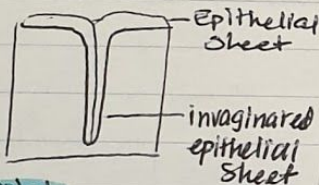 Epithelial
Sheet
invaginared
epithelial
Sheet